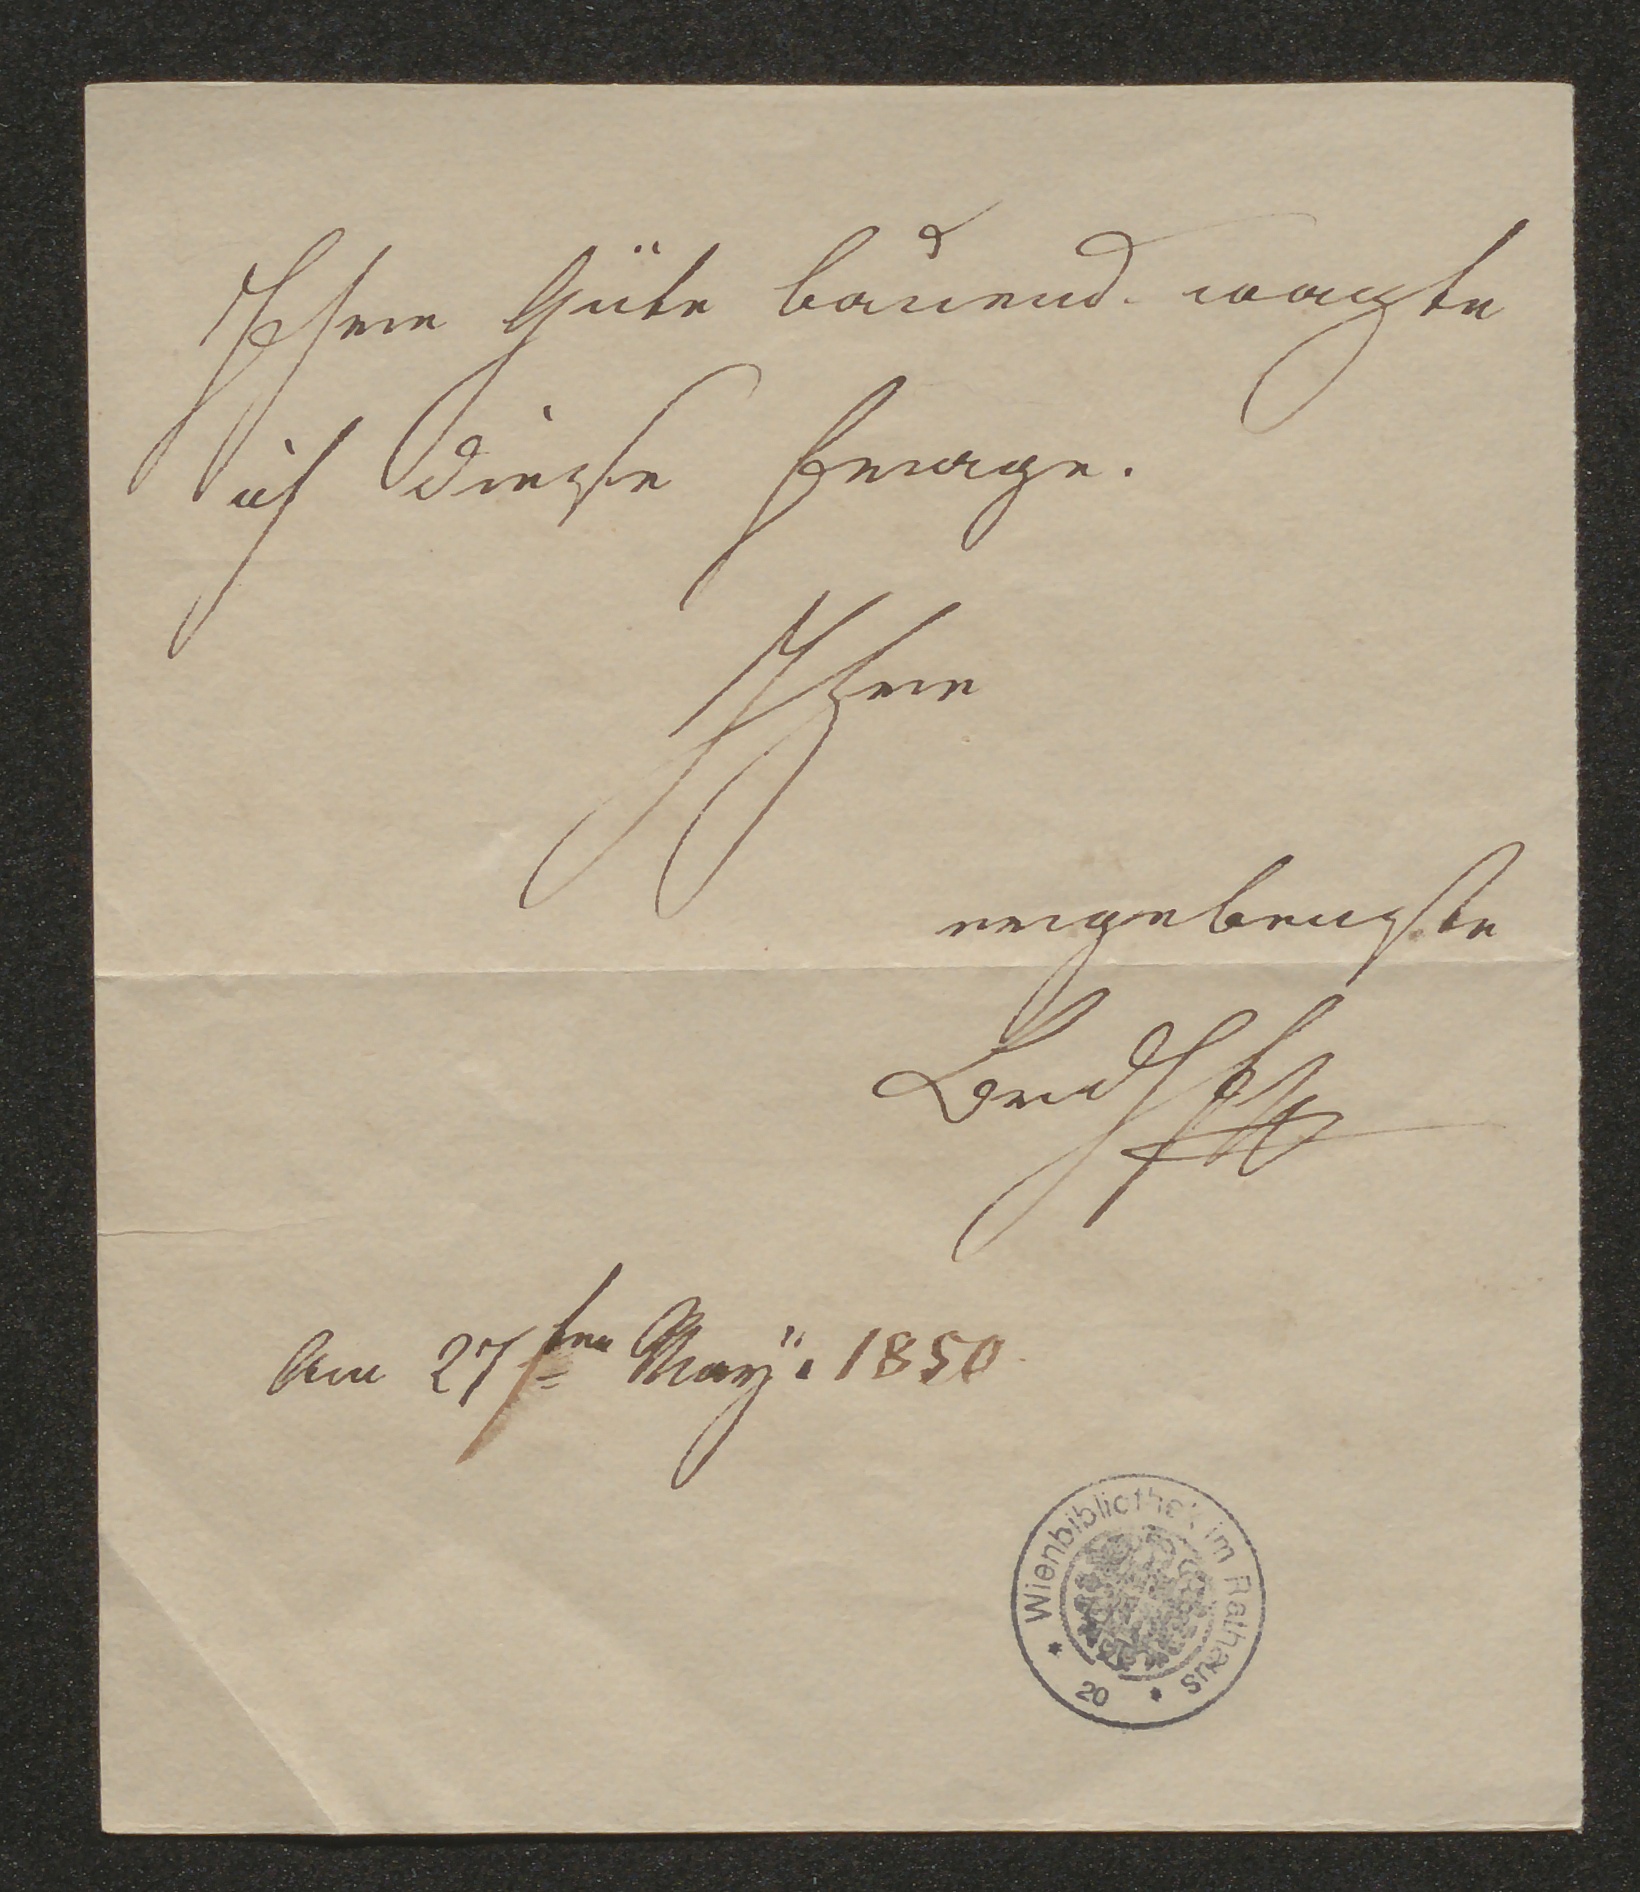 Ihre Güte bauend wagte
ich diese Frage.
Ihre
ergebenste
Am 27ten May. 1850
Wienbibliothek im Rathaus
20